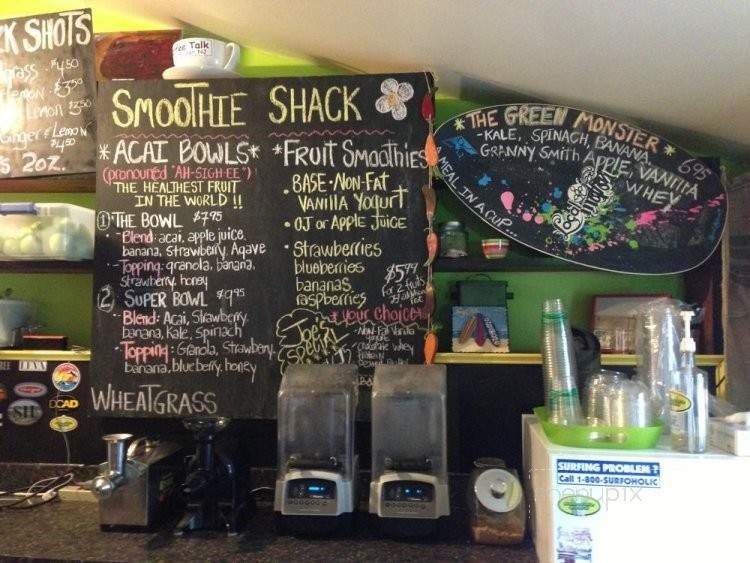 CK SHOTS
grass $4.50
Lemon $3.50
Lemon $3.50
Ginger & Lemon
$4.50
2oz.
Talk
SMOOTHIE SHACK
*ACAI BOWLS*
(pronounced "AH-SIGH-EE")
THE HEALTHIEST FRUIT
IN THE WORLD !!
1 THE BOWL $7.95
Blend: acai, apple juice,
banana, strawberry, Agave
Topping: granola, banana,
strawberry, honey
2 SUPER BOWL $9.95
Blend: Acai, Strawberry,
banana, Kale, Spinach
Topping: Granola, Strawberry,
banana, blueberry, honey
WHEATGRASS
*FRUIT SMOOTHIES
• BASE - NON-FAT
VANILLA YOGURT
• OJ or APPLE JUICE
• Strawberries
blueberries
bananas
raspberries
$5.99
For 2 fruits
*your choice*
Joe's
Special
- Non-Fat Vanilla
yogurt
- Chocolate Whey
Protein
*THE GREEN MONSTER*
-KALE, SPINACH, BANANA,
GRANNY SMITH APPLE, VANILLA
WHEY
6.95
A MEAL IN A CUP...
SURFING PROBLEM ?
Call 1-800-SURFOHOLIC
menupix